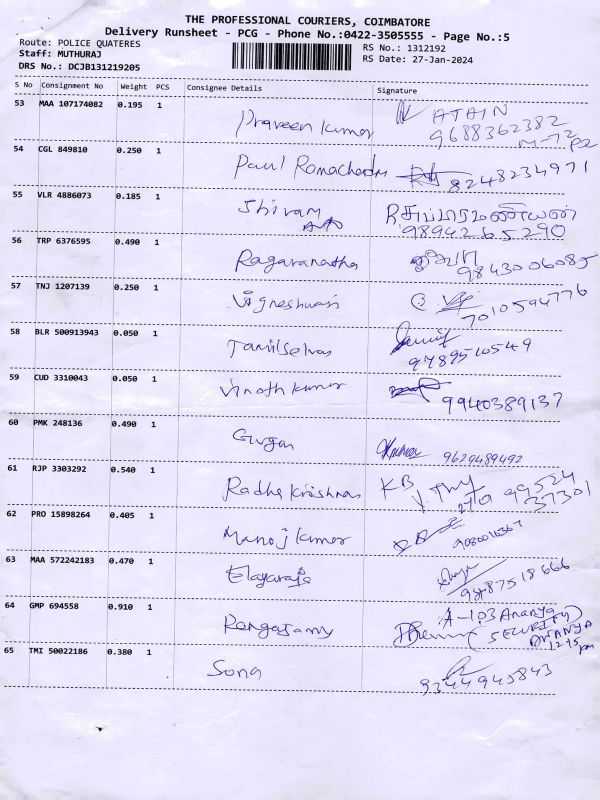 THE PROFESSIONAL COURIERS, COIMBATORE
Delivery Runsheet - PCG - Phone No.:0422-3505555 - Page No.:5
Route: POLICE QUATERES
RS No.: 1312192
Staff: MUTHURAJ
RS Date: 27-Jan-2024
DRS No.: DCJB131219205
S No Consignment No Weight PCS Consignee Details Signature
53 MAA 107174082 0.195 1 Praveen kumar
ATAIN
9688362382
54 CGL 849810 0.250 1 Paul Ramachandran
8248234971
55 VLR 4886073 0.185 1 Shivam
9894265290
56 TRP 6376595 0.490 1 Ragavanatha
9843006085
57 TNJ 1207139 0.250 1 Vigneshwari
7010594776
58 BLR 500913943 0.050 1 Tamilselvan
9789510549
59 CUD 3310043 0.050 1 Vinoth kumar
9940389137
60 PMK 248136 0.490 1 Gugan
9629489492
61 RJP 3303292 0.540 1 Radha Krishnan KB
99524
37301
62 PRO 15898264 0.405 1 Manoj kumar
63 MAA 572242183 0.470 1 Elayaraja
9487518666
64 GMP 694558 0.910 1 Rangasamy
A-103 Ananya
SECURITY
ANANYA
12.45
pm
65 TMI 50022186 0.380 1 Sona
9344945843